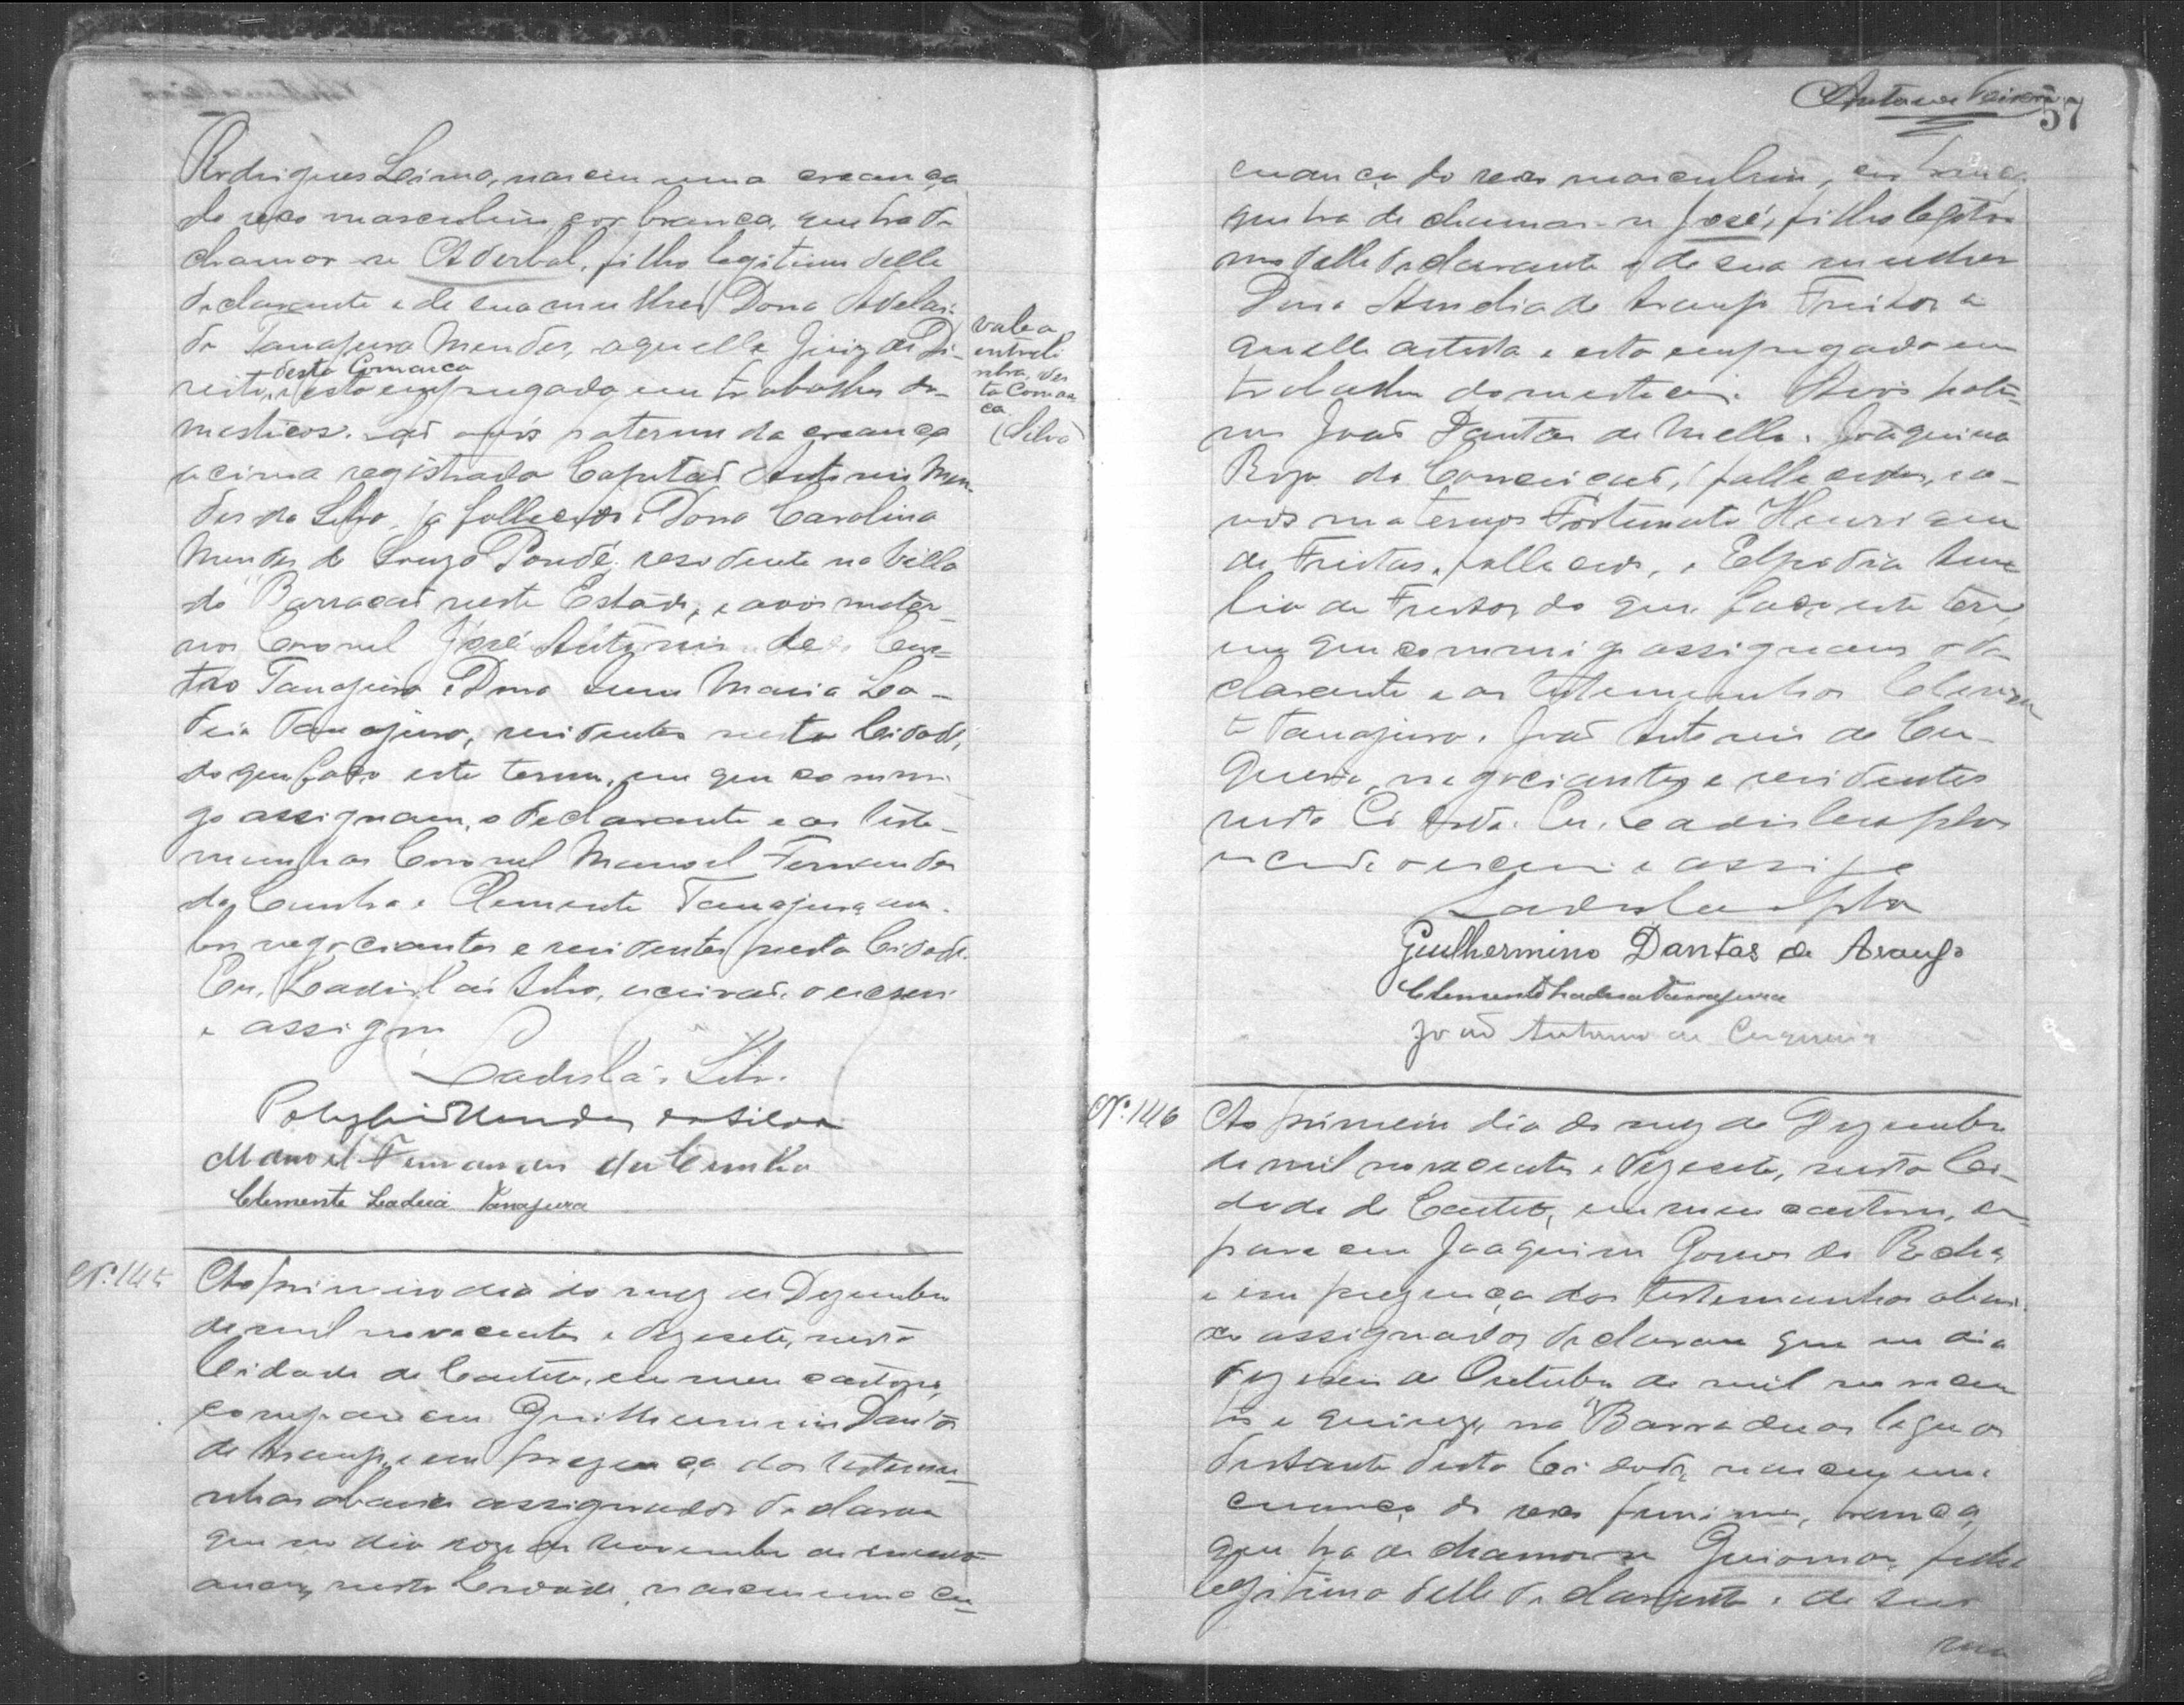 Rodrigues Lima, nasceu uma creança
do sexo masculino, cor branca, que ha de
chamar-se Aderbal, filho legitimo delle
declarante e de sua mulher Dona Adelai-
de Tanajura Mendes, aquelle Juiz de Di-
desta Comarca
reito, e esta empregada em trabalhos do-
mesticos. São avós paternos da creança
acima registrada Capitão Antonio Men-
des da Silva, já fallecido e Dona Carolina
Mendes de Souza Pondé, residente na Villa
do Barracão neste Estado, e avós mater-
nos Coronel José Antonio de Cas-
tro Tanajura e Dona Anna Maria La-
deia Tanajura, residentes nesta Cidade,
do que faço este termo, em que commi-
go assignam, o declarante e as teste-
munhas Coronel Manoel Fernandes
da Cunha e Clemente Tanajura, am-
bos negociantes e residentes nesta Cidade.
Eu, Ladisláo Silva, escrivão, o escrevi
e assigno
Ladisláo Silva
Polybio Mendes da Silva
Manoel Fernandes da Cunha
Clemente Ladeia Tanajura
vale a
entreli
nha, des
ta Comar
ca
Silva
Nº. 145
Ao primeiro dia do mez de Dezembro
de mil novecentos e dezesete, nesta
Cidade de Caeteté, em meu cartorio,
compareceu Guilhermino Dantas
de Araujo, e em presença das testemu-
nhas abaixo assignadas declarou
que no dia de Novembro do
anno, nesta Cidade, nasceu uma cre-
57
creança do sexo masculino, cor branca,
que ha de chamar-se José, filho legiti-
mo delle declarante e de sua mulher
Dona Amelia de Araujo Freitas, a
quelle artista e esta empregada em
trabalhos domesticos. Avós pater-
nos João Dantas de Mello e Joaquina
Rosa da Conceição, fallecidos, e a-
vós maternos Fortunato Henriques
de Freitas, fallecido, e Elpidia Ame
lia de Freitas, do que, faço este termo,
em que commigo assignam o de-
clarante e as testemunhas Clemen
te Tanajura e João Antonio de Cer-
queira, negociantes e residentes
nesta Cidade. Eu, Ladisláo Silva
escrivão o escrevi e assigno
Ladisláo Silva
Guilhermino Dantas de Araujo
Clemente Ladeia Tanajura
João Antonio de Cerqueira
Nº. 146
Ao primeiro dia do mez de Dezembro
de mil novecentos e dezesete, nesta Ci-
dade de Caeteté, em meu cartorio, com-
pareceu Joaquim Gomes da Rocha
e em presença das testemunhas abai-
xo assignadas declarou que no dia
dezeseis de Outubro de mil novecen
tos e quinze, na "Barra das lagoas
distante desta Cidade, nasceu uma
creança do sexo feminino, branca,
que ha de chamar-se Guiomar, filha
legitima delle declarante e de sua
mu